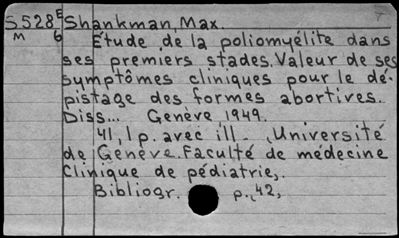 S528E Shankman, Max.
M 6 Étude de la poliomyélite dans
ses premiers stades. Valeur de ses
symptômes cliniques pour le dé-
pistage des formes abortives.
Diss... Genève, 1949.
41, 1 p. avec ill. (Université
de Genève. Faculté de médecine
Clinique de pédiatrie).
Bibliogr. p. 42,